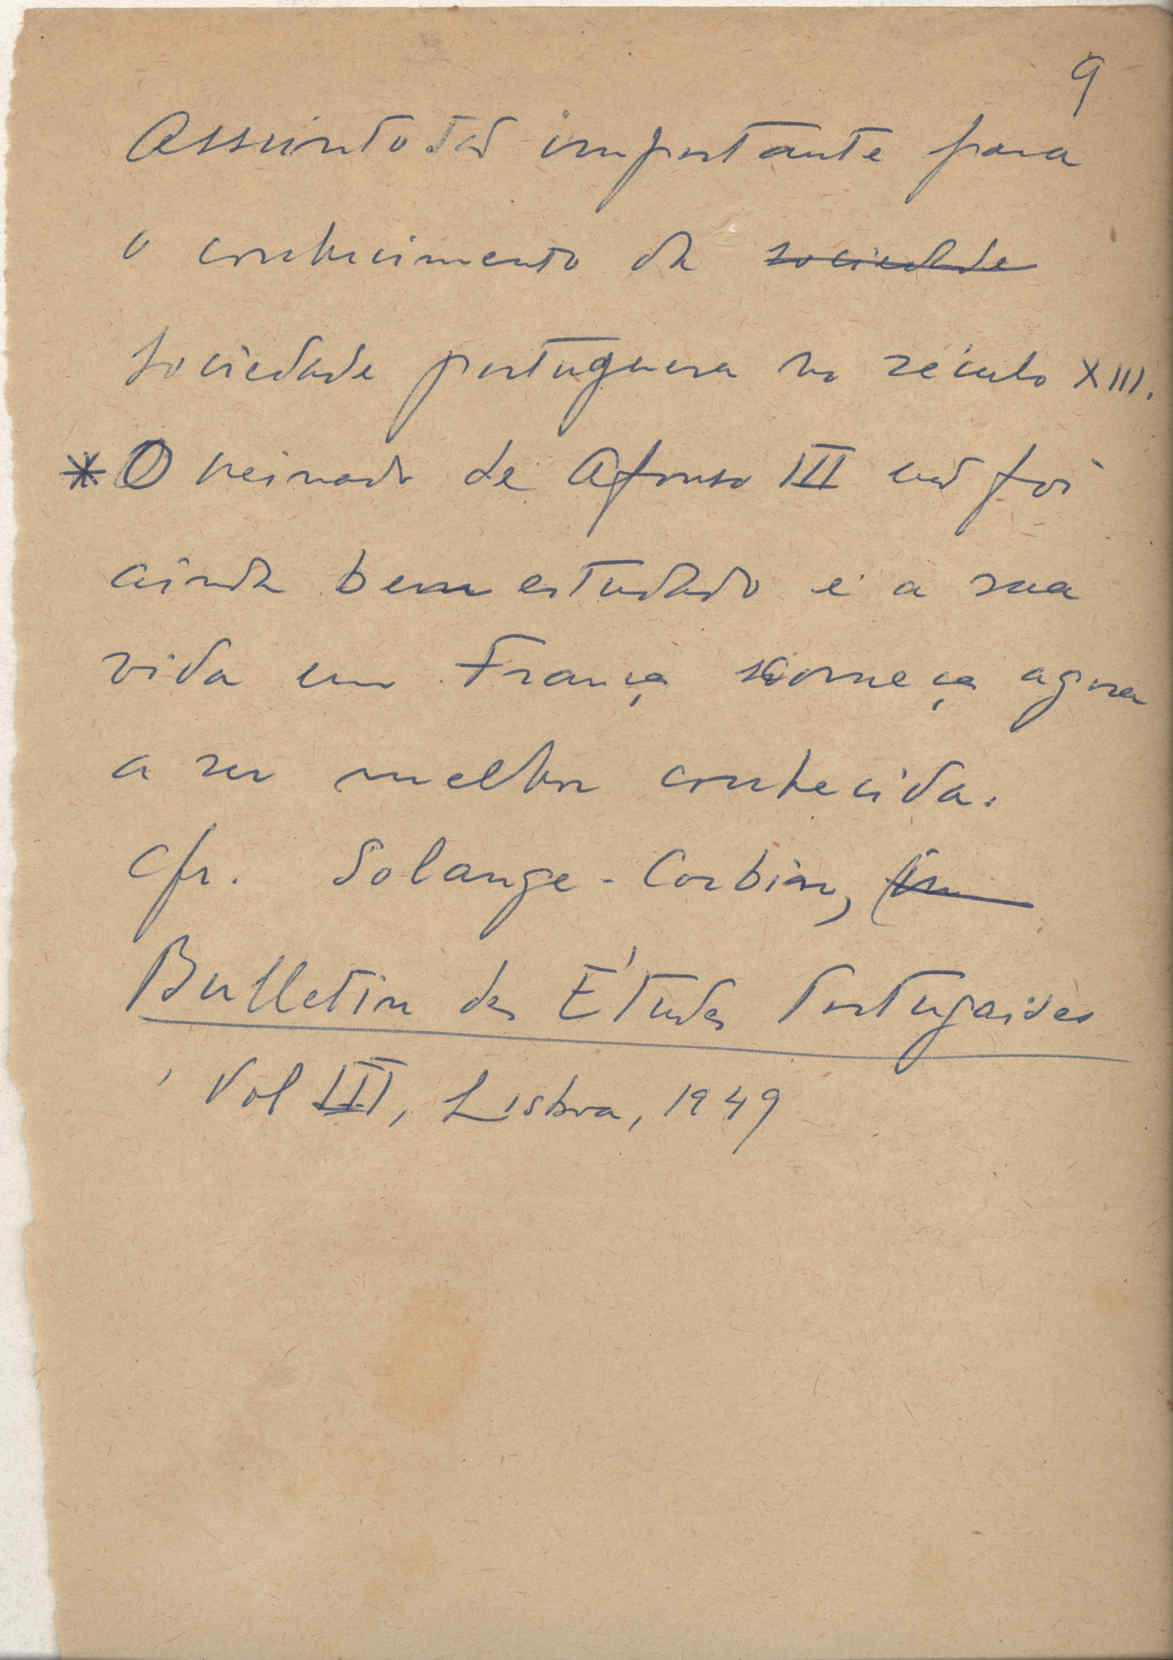 9
Assunto tão importante para
o conhecimento da sociedade
sociedade portuguesa no século XIII.
* O reinado de Afonso III não foi
ainda bem estudado e a sua
vida em França começa agora
a ser melhor conhecida.
Cfr. Solange-Corbin, (in
Bulletin des Études Portugaises
, Vol III, Lisboa, 1949